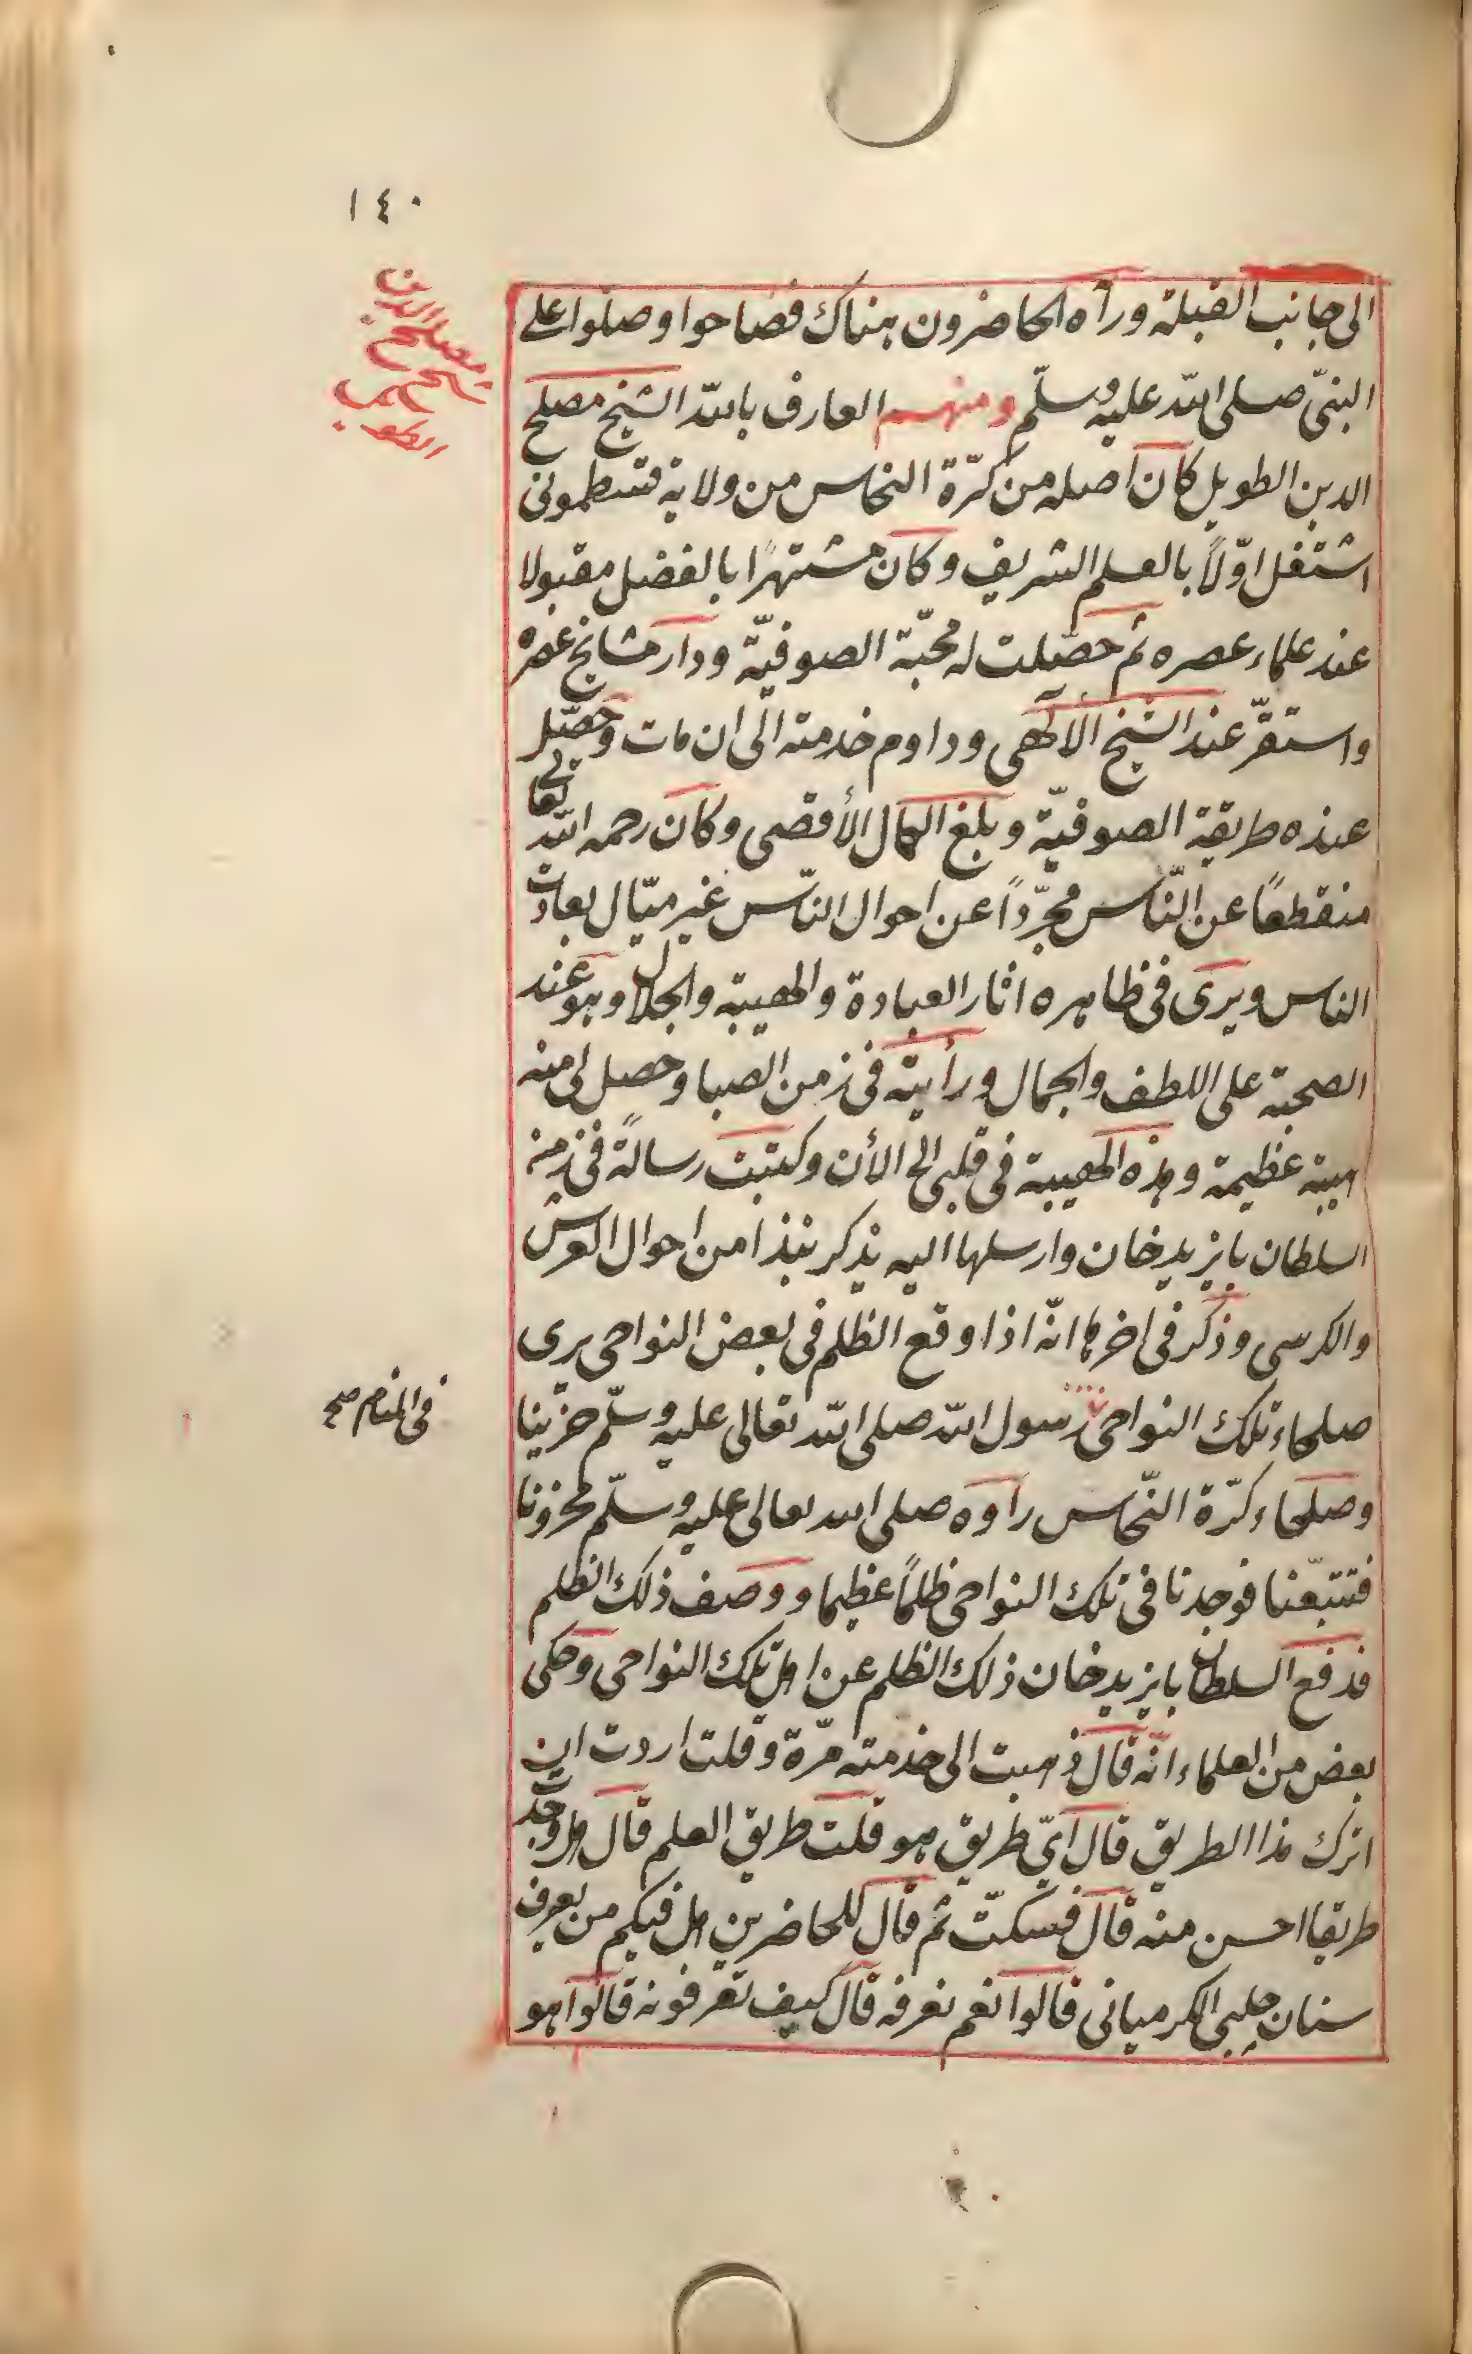 ١٤٠
الى جانب القبلة ورأه الحاضرون هناك فصاحوا وصلوا على
النبىّ صلى الله عليه وسلّم ومنهم العارف بالله الشيخ مصلح
الدين الطويل كان اصله من كرّة النحاس من ولاية قسطمونى
اشتغل اوّلاً بالعلم الشريف وكان مشتهرًا بالفضل مقبولا
عند علماء عصره ثم حصّلت له محبّة الصوفيّة ودار مشايخ عصره
واستقرّ عند الشيخ الالهى وداوم خدمته الى ان مات وحصّل
عنده طريقة الصوفيّة وبلغ الكمال الأقصى وكان رحمه الله تعالى
منقطعًا عن النّاس مجرّدًا عن احوال النّاس غير ميّال بعادات
الناس ويرى فى ظاهره اثار العبادة والهيبة والجلال وهو عند
الصحبة على اللطف والجمال ورأيته فى زمن الصبا وحصل لى منه
هيبة عظيمة وهذه الهيبة فى قلبى الى الأن وكتبت رسالةً فى زمن
السلطان بايزيد خان وارسلها اليه يذكر نبذا من احوال العرش
والكرسى وذكر فى اخرها انّه اذا وقع الظلم فى بعض النواحى يرى
صلحاء تلك النواحى رسول الله صلى الله تعالى عليه وسلّم حزينا
فى المنام صح
وصلحاء كرّة النّحاس راوه صلى الله تعالى عليه وسلّم محزونا
فتتبّعنا فوجدنا فى تلك النواحى ظلمًا عظيما ووصف ذلك الظلم
فدفع السلطان بايزيد خان ذلك الظلم عن اهل تلك النواحى وحكى
بعض من العلماء انّه قال ذهبت الى خدمته مرّة وقلت اردت ان
اترك هذا الطريق قال اىّ طريق هو قلت طريق العلم قال هل وجدت
طريقا احسن منه قال فسكتّ ثم قال للحاضرين هل فيكم من يعرف
سنان چلبى الكرميانى قالوا نعم نعرفه قال كيف تعرفونه قالوا هو